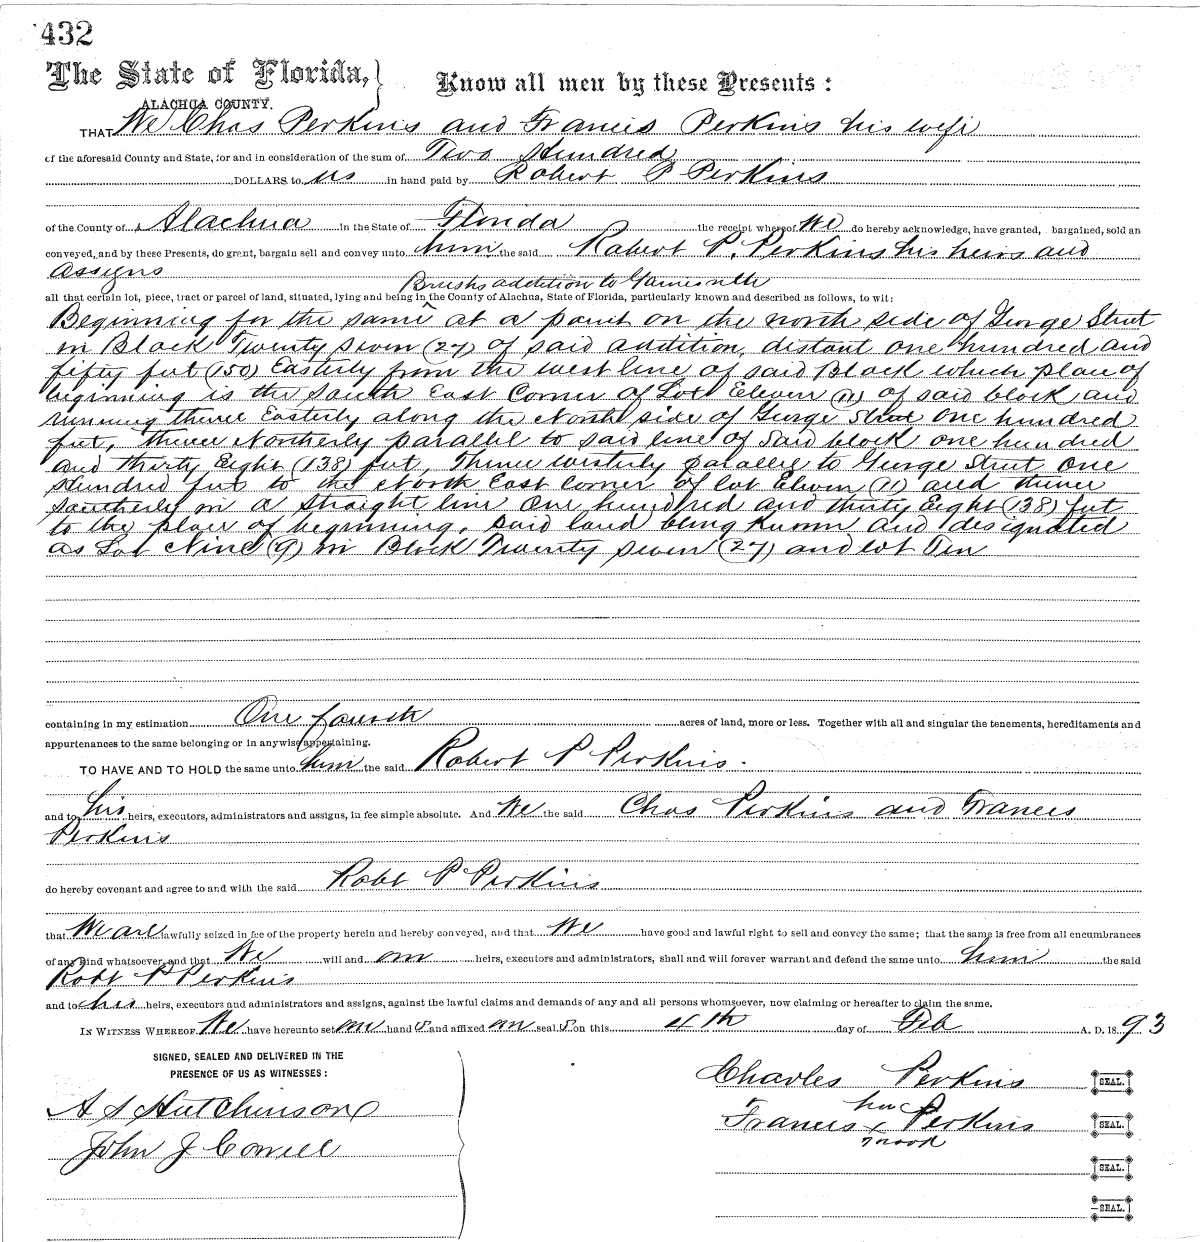 432
The State of Florida, Know all men by these Presents:
ALACHUA COUNTY.
THAT We Chas Perkins and Francis Perkins his wife
of the aforesaid County and State, for and in consideration of the sum of Two Hundred
DOLLARS to us in hand paid by Robert P Perkins
of the County of Alachua in the State of Florida the receipt whereof We do hereby acknowledge, have granted, bargained, sold an
conveyed, and by these Presents, do grant, bargain sell and convey unto him the said Robert P. Perkins his heirs and
assigns
Brushs addition to Gainesville
all that certain lot, piece, tract or parcel of land, situated, lying and being in the County of Alachua, State of Florida, particularly known and described as follows, to wit:
Beginning for the same at a point on the north side of George Street
in Block Twenty seven (27) of said addition, distant one hundred and
fifty feet (150) Easterly from the west line of said Block which place of
beginning is the South East Corner of Lot Eleven (11) of said block and
running thence Easterly along the North side of George Street one hundred
feet, thence Northerly parallel to said line of said block one hundred
and thirty Eight (138) feet, Thence westerly parallel to George Street One
Hundred feet to the North East Corner of lot Eleven (11) and thence
southerly in a straight line one hundred and thirty Eight (138) feet
to the place of beginning, said land being known and designated
as Lot Nine (9) in Block Twenty seven (27) and lot Ten
containing in my estimation One fourth acres of land, more or less. Together with all and singular the tenements, hereditaments and
appurtenances to the same belonging or in anywise appertaining.
TO HAVE AND TO HOLD the same unto him the said Robert P Perkins.
and to his heirs, executors, administrators and assigns, in fee simple absolute. And We the said Chas Perkins and Frances
Perkins
do hereby covenant and agree to and with the said Robt P Perkins
that We are lawfully seized in fee of the property herein and hereby conveyed, and that We have good and lawful right to sell and convey the same; that the same is free from all encumbrances
of any kind whatsoever, and that We will and our heirs, executors and administrators, shall and will forever warrant and defend the same unto him the said
Robt P Perkins
and to his heirs, executors and administrators and assigns, against the lawful claims and demands of any and all persons whomsoever, now claiming or hereafter to claim the same.
IN WITNESS WHEREOF We have hereunto set our hand s and affixed our seal s on this 4th day of Feb A. D. 18 93
SIGNED, SEALED AND DELIVERED IN THE
PRESENCE OF US AS WITNESSES:
Charles Perkins SEAL.
A S Hutchinson
her
Francis x Perkins SEAL.
mark
John J
SEAL.
SEAL.